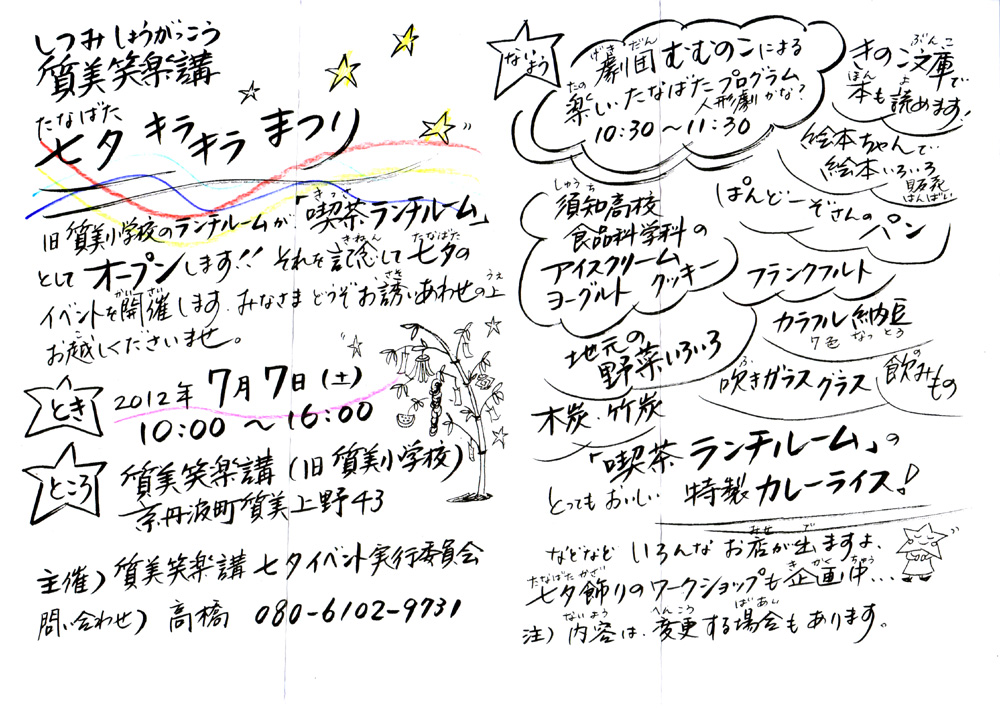 しつみ しょうがっこう
質美笑楽講
たなばた
七夕 キラキラ まつり
旧質美小学校のランチルームが、「喫茶ランチルーム」
きっさ
としてオープンします!! それを記念して七夕の
きねん たなばた
イベントを開催します。みなさま どうぞお誘いあわせの上
かいさい さそ うえ
お越しくださいませ。
とき
2012年 7月7日(土)
10:00 〜 16:00
ところ
質美笑楽講(旧質美小学校)
京丹波町質美上野43
主催)質美笑楽講 七夕イベント実行委員会
問い合わせ) 高橋 080-6102-9731
ないよう
げき だん
劇団むむのこによる
たの
楽しいたなばたプログラム
人形劇かな?
10:30〜11:30
ぶんこ
きのこ文庫で
ほん よ
本も読めます!
絵本ちゃんで
絵本いろいろ
販売
はんばい
しゅうち
須知高校
食品科学科の
アイスクリーム
ヨーグルト クッキー
ぱんどーぞさんの
パン
フランクフルト
カラフル納豆
7色 なっとう
地元の
野菜いろいろ
ふ
吹きガラスグラス
の
飲みもの
木炭・竹炭
「喫茶 ランチルーム」の
とってもおいしい 特製カレーライス!
みせ で
などなど いろんな お店が出ますよ、
たなばたかざ き かくちゅう
七夕飾りのワークショップも企画中...
ないよう へんこう ばあい
注)内容は、変更する場合もあります。